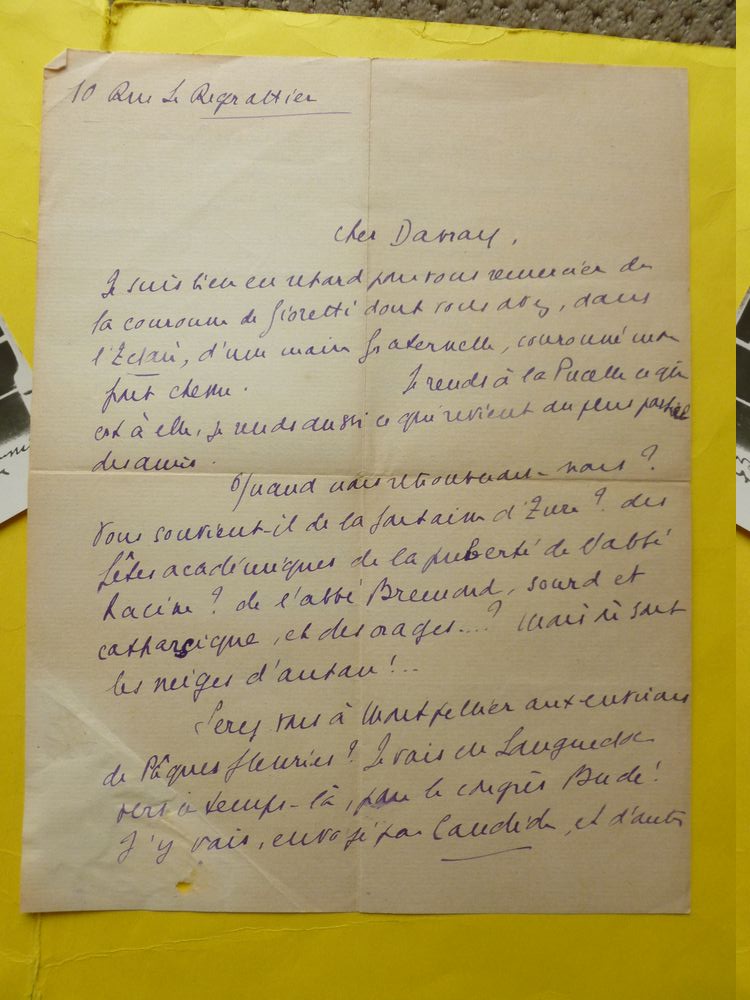 10 Rue Le Regrattier
Cher Davray,
Je suis bien en retard pour vous remercier de
la couronne de fioretti dont vous avez, dans
l'Éclair, d'une main fraternelle, couronné mon
front chenu. Je rends à la Pucelle ce qui
est à elle, je rends aussi ce qui revient au plus
des amis.
Quand nous retrouvons-nous ?
Vous souvient-il de la fontaine d'Eure ? des
fêtes académiques de la puberté de l'abbé
Racine ? de l'abbé Bremond, sourd et
, et des orages....? Mais où sont
les neiges d'antan !..
Serez vous à Montpellier aux environs
de Pâques fleuries ? Je vais en Languedoc
vers ce temps-là, pour le congrès Budé !
J'y vais, envoyé par Candide, et d'autres